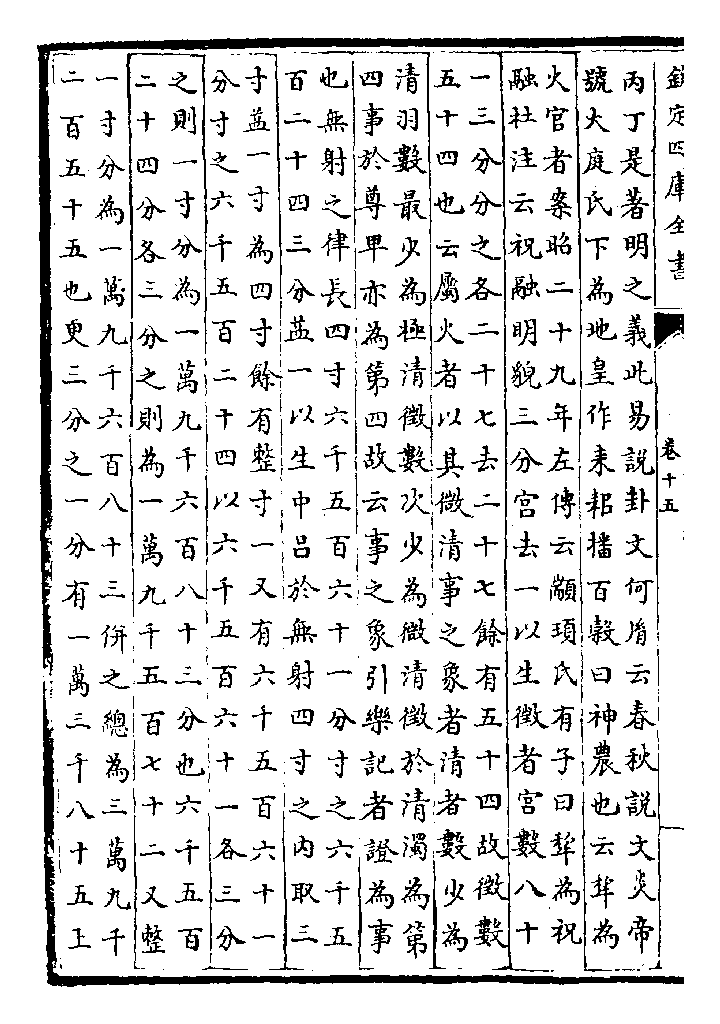 欽定四庫全書
卷十五
丙丁是著明之義此易說卦文何胤云春秋說文炎帝
號大庭氏下為地皇作耒耜播百穀曰神農也云犂為
火官者案昭二十九年左傳云顓頊氏有子曰犂為祝
融杜注云祝融明貌三分宮去一以生徵者宮數八十
一三分分之各二十七去二十七餘有五十四故徵數
五十四也云屬火者以其微清事之象者清者數少為
清羽數最少為極清徵數次少為微清徵於清濁為第
四事於尊卑亦為第四故云事之象引樂記者證為事
也無射之律長四寸六千五百六十一分寸之六千五
百二十四三分益一以生中呂於無射四寸之內取三
寸益一寸為四寸餘有整寸一又有六千五百六十一
分寸之六千五百二十四以六千五百六十一各三分
之則一寸分為一萬九千六百八十三分也六千五百
二十四分各三分之則為一萬九千五百七十二又整
一寸分為一萬九千六百八十三併之總為三萬九千
二百五十五也更三分之一分有一萬三千八十五上